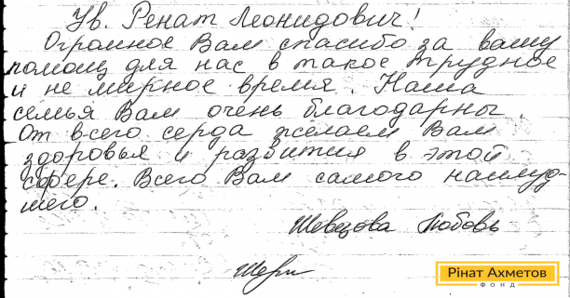 Ув. Ренат Леонидович!
Огромное Вам спасибо за вашу
помощ для нас в такое трудное
и не мирное время. Наша
семья Вам очень благодарны.
От всего серда желаем Вам
здоровья и развития в этой
сфере. Всего Вам самого наилуд-
шего.
Шевцова Любовь
Рінат Ахметов
ФОНД